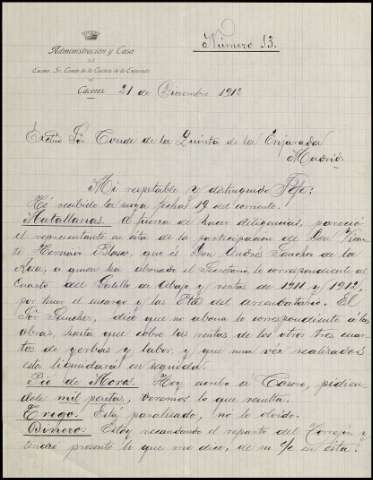 Administración y Casa
del
Excmo. Sr. Conde de la Quinta de la Enjarada
Cáceres
Número 53.
21 de Diciembre 1912
Excmo Sor Conde de la Quinta de la Enjarada
Madrid
Mi respetable y distinguido Jefe:
He recibido la suya fecha 19 del corriente.
Matallanas. A fuerza de hacer diligencias, pareció
el representante en ésta de la participación de Don
Herrero, que es Don Andrés Sanchez de la
Rosa, a quien ha abonado el Secretario lo correspondiente al
cuarto del Potillo de Abajo y rentas de 1911 y 1912,
por tener el encargo y las del arrendatario. El
Sor Sanchez, dice que no abona lo correspondiente á las
obras, hasta que cobre las rentas de los otros tres cuar-
tos de yerbas y labor, y que una vez realizadas
esta liquidará en seguida.
Pio de Moros. Hoy escribo a Casero, pidien-
dole mil pesetas, veremos lo que resulta.
Trigo. Está paralizado, no lo olvido.
Dinero. Estoy recaudando el reparto del Torrejon y
tendré presente lo que me dice, de su c/c en ésta.